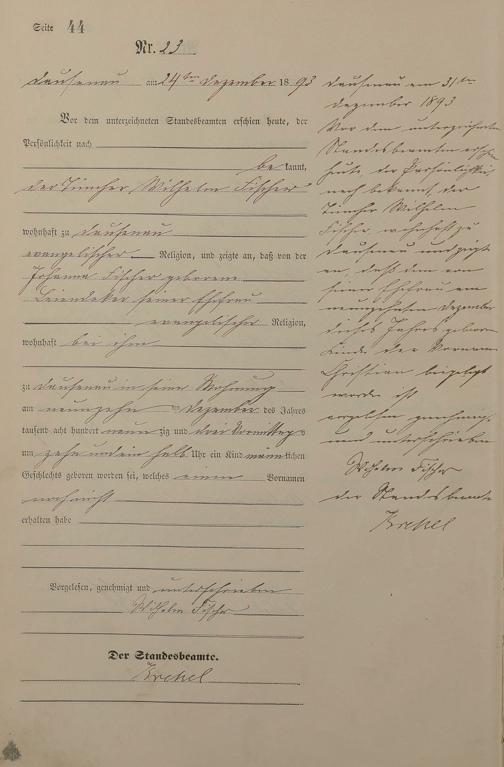 Seite 44
Nr. 23
Dausenau am 24ten Dezember 1893
Vor dem unterzeichneten Standesbeamten erschien heute, der
Persönlichkeit nach
bekannt,
der Tüncher Wilhelm Fischer
wohnhaft zu Dausenau
evangelischer Religion, und zeigte an, daß von der
Johanna Fischer geborene
Leiendeker seiner Ehefrau
evangelischer Religion,
wohnhaft bei ihm
zu Dausenau in seiner Wohnung
am neunzehn Dezember des Jahres
tausend acht hundert neunzig und drei Vormittags
um zehn und ein halb Uhr ein Kind männlichen
Geschlechts geboren worden sei, welches einen Vornamen
noch nicht
erhalten habe
Vorgelesen, genehmigt und unterschrieben
Wilhelm Fischer
Der Standesbeamte.
Dausenau am 31ten
Dezember 1893
Vor dem unterzeichneten
Standesbeamten erschien
heute, der Persönlichkeit
nach bekannt der
Tüncher Wilhelm
Fischer, wohnhaft zu
Dausenau und zeigte
an, daß dem von
seiner Ehefrau am
neunzehnten Dezember
dieses Jahres geborenen
Kinde der Vorname
Christian beigelegt
worden ist
vorgelesen genehmigt
und unterschrieben
Wilhelm Fischer
der Standesbeamte